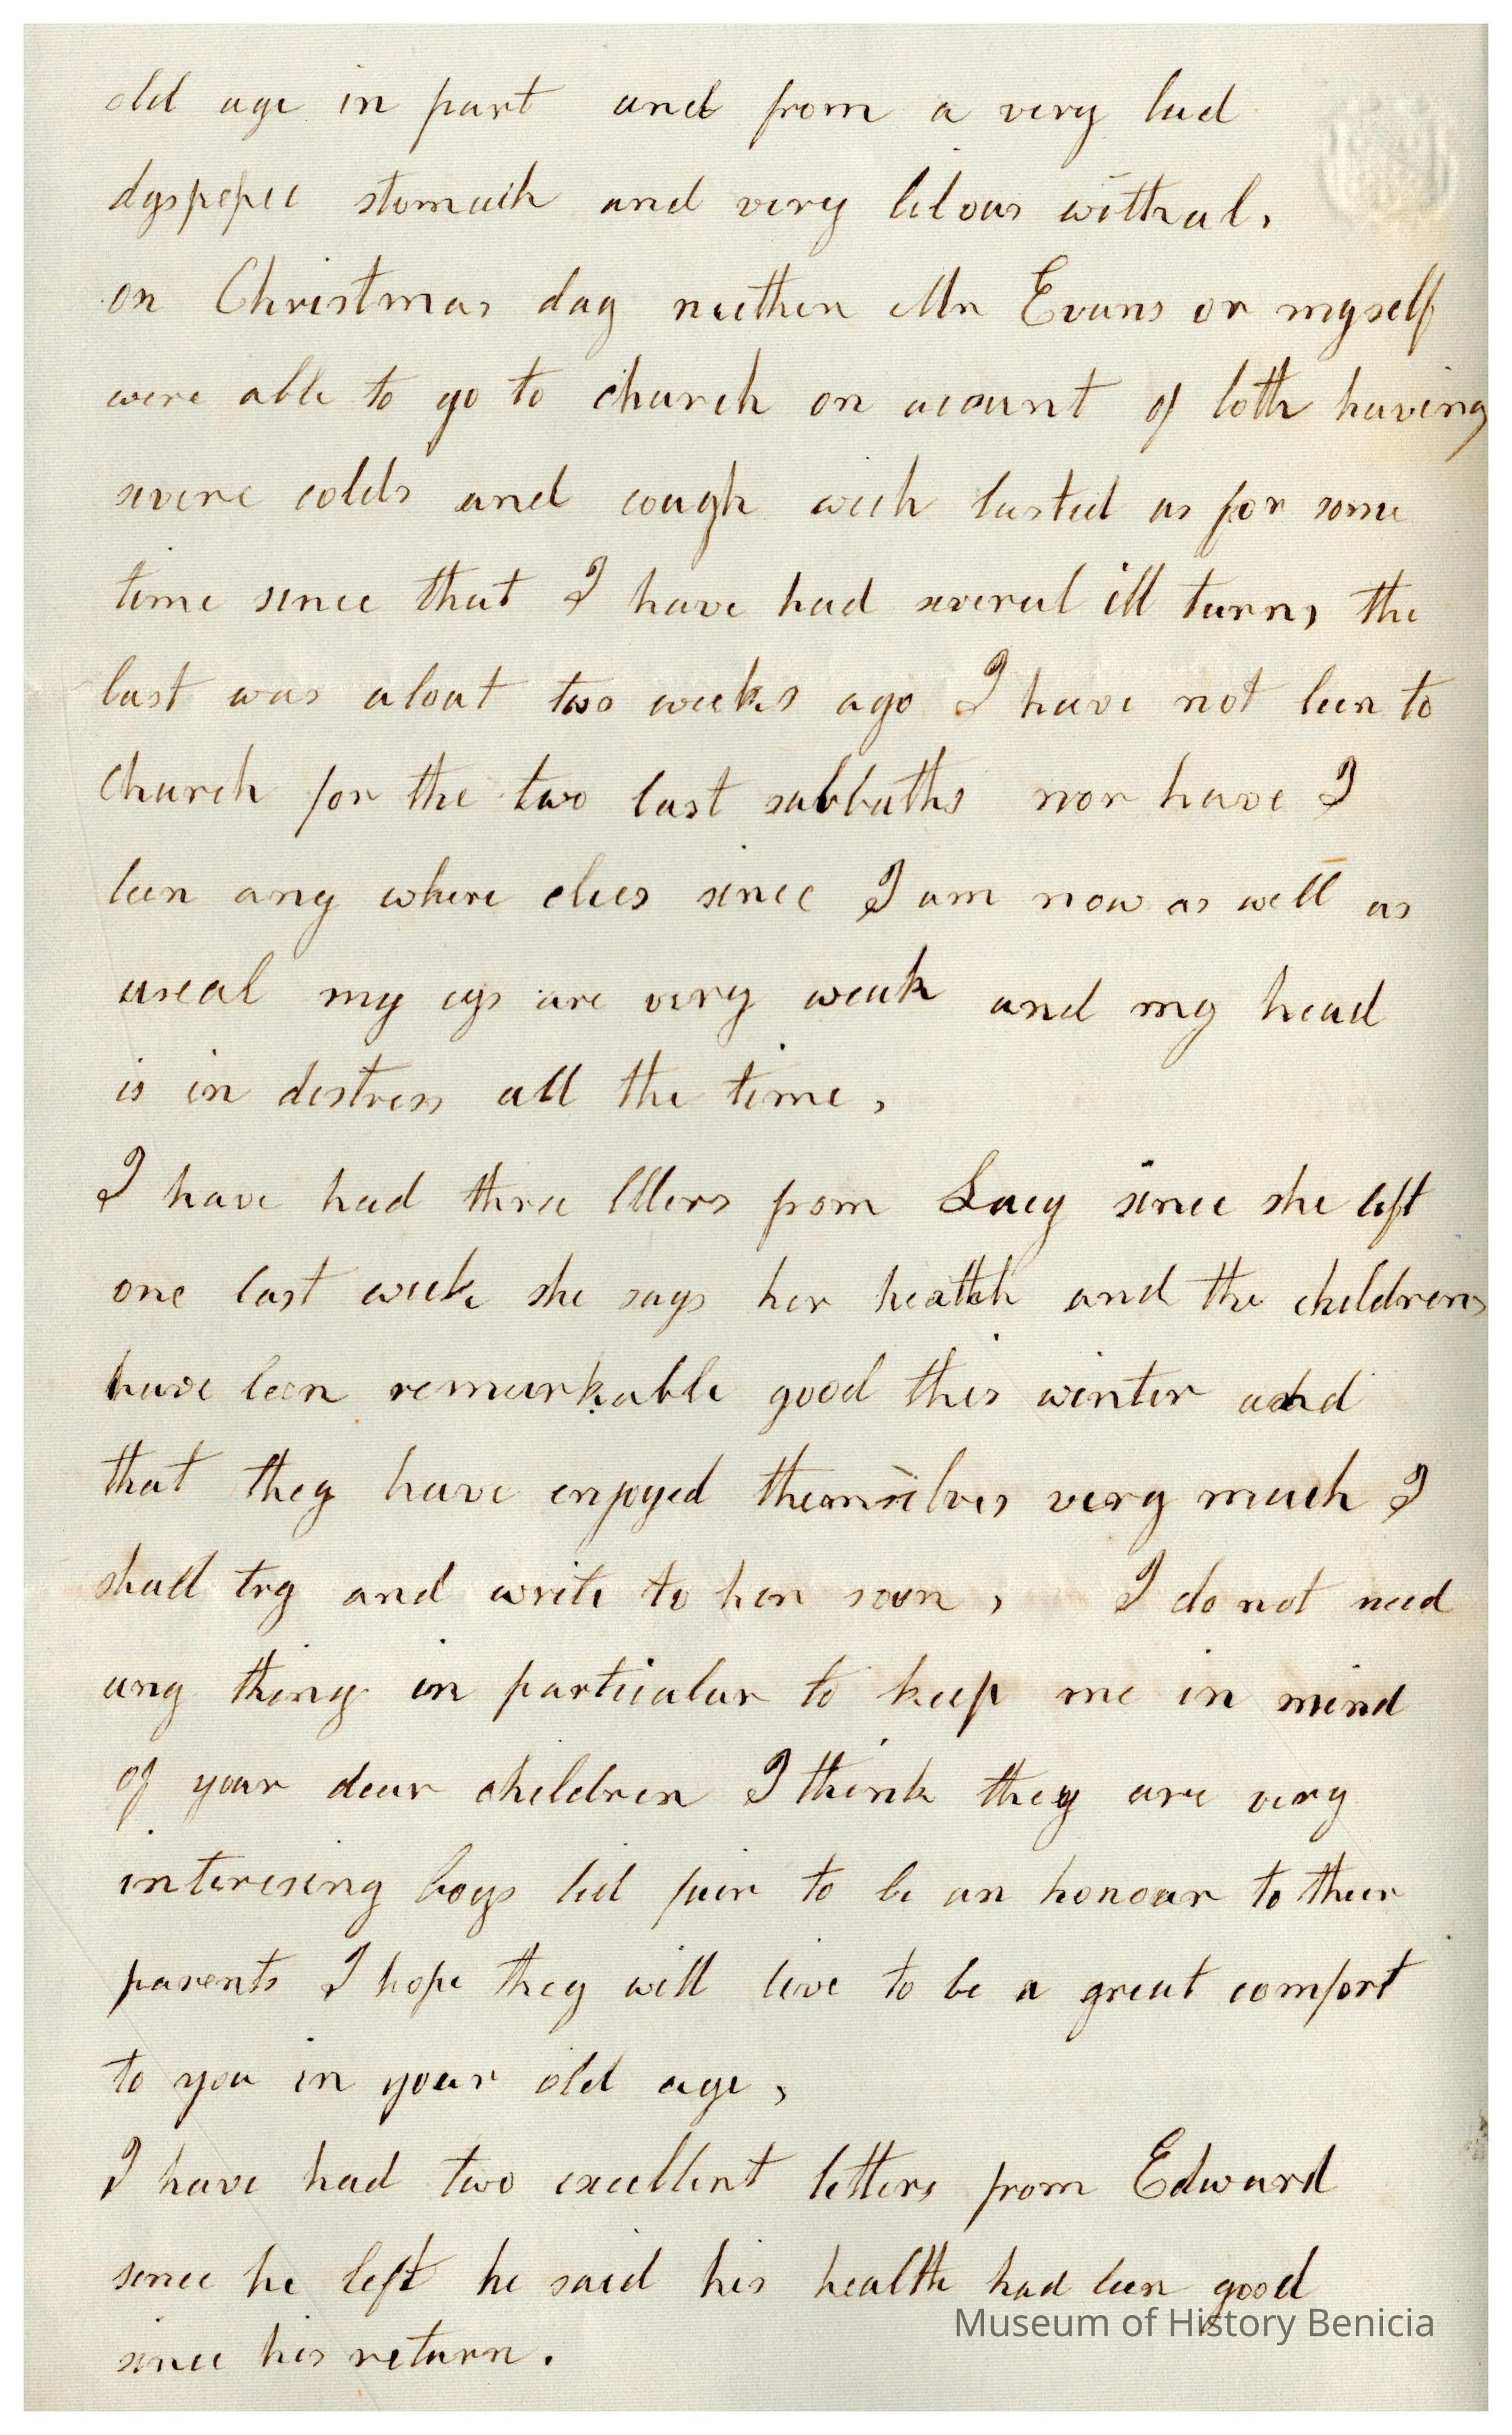 old age in part and from a very bad
dyspepec stomach and very bilous withal,
on Christmas day neither Mr Evans or myself
were able to go to church on account of both having
severe colds and cough wich lasted us for some
time since that I have had several ill turns the
last was about two weeks ago I have not been to
church for the two last sabbaths nor have I
been any where elces since I am now as well as
useal my eys are very weak and my head
is in destress all the time,
I have had three lllers from Lucy since she left
one last week she says her heatlth and the childrens
have been remarkable good this winter and
that they have enjoyed themselves very much I
shall try and write to her soon, I do not need
any thing in particular to keep me in mind
of your dear children I think they are very
interesing boys bid fair to be an honour to their
parents I hope they will live to be a great comfort
to you in your old age,
I have had two excellent letters from Edward
since he left he said his health had been good
since his return.
Museum of History Benicia